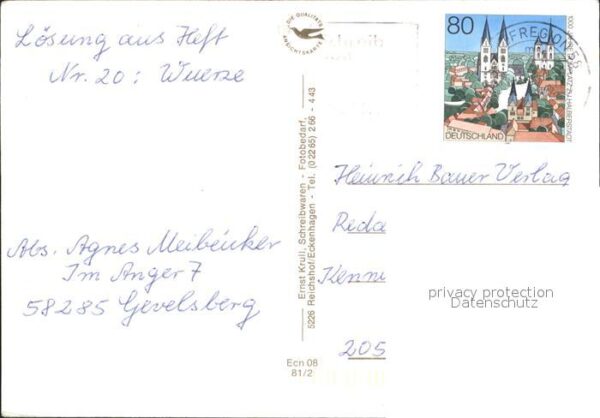 Lösung aus Heft
Nr. 20: Wuerze
Abs. Agnes Meibeücker
Im Anger 7
58285 Gevelsberg
DIE QUALITÄTS
ANSICHTSKARTE
Ernst Krull, Schreibwaren - Fotobedarf,
5226 Reichshof/Eckenhagen - Tel. (02265) 266 - 443
Ecn 08
81/2
80
DEUTSCHLAND
Heinrich Bauer Verlag
Reda
Kenn
205
privacy protection
Datenschutz